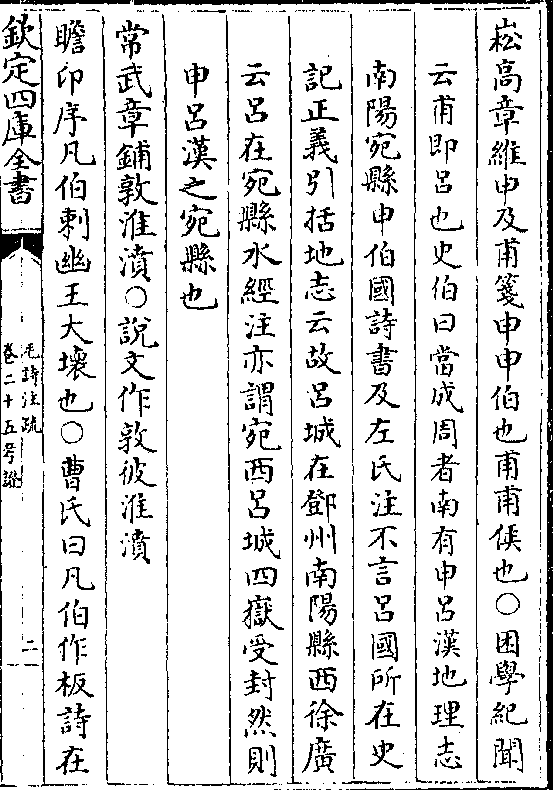 崧高章維申及甫箋申申伯也甫甫侯也○困學紀聞
云甫即呂也史伯曰當成周者南有申呂漢地理志
南陽宛縣申伯國詩書及左氏注不言呂國所在史
記正義引括地志云故呂城在鄧州南陽縣西徐廣
云呂在宛縣水經注亦謂宛西呂城四嶽受封然則
申呂漢之宛縣也
常武章鋪敦淮濆○說文作敦彼淮濆
瞻卬序凡伯刺幽王大壞也○曹氏曰凡伯作板詩在
欽定四庫全書
毛詩注疏
卷二十五考證
二